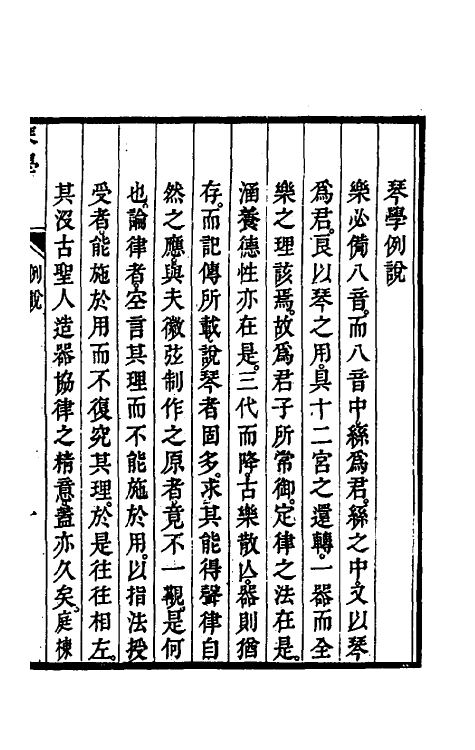 琴學例說
樂必備八音。而八音中。絲爲君。絲之中。又以琴
爲君。良以琴之用。具十二宮之還轉。一器而全
樂之理該焉。故爲君子所常御。定律之法在是。
涵養德性亦在是。三代而降。古樂散亾。器則猶
存。而記傳所載。說琴者固多。求其能得聲律自
然之應。與夫徽弦制作之原者。竟不一觀。是何
也。論律者。空言其理而不能施於用。以指法授
受者。能施於用而不復究其理。於是往往相左。
其沒古聖人造器協律之精意。蓋亦久矣。庭棟
琴學
例說
一